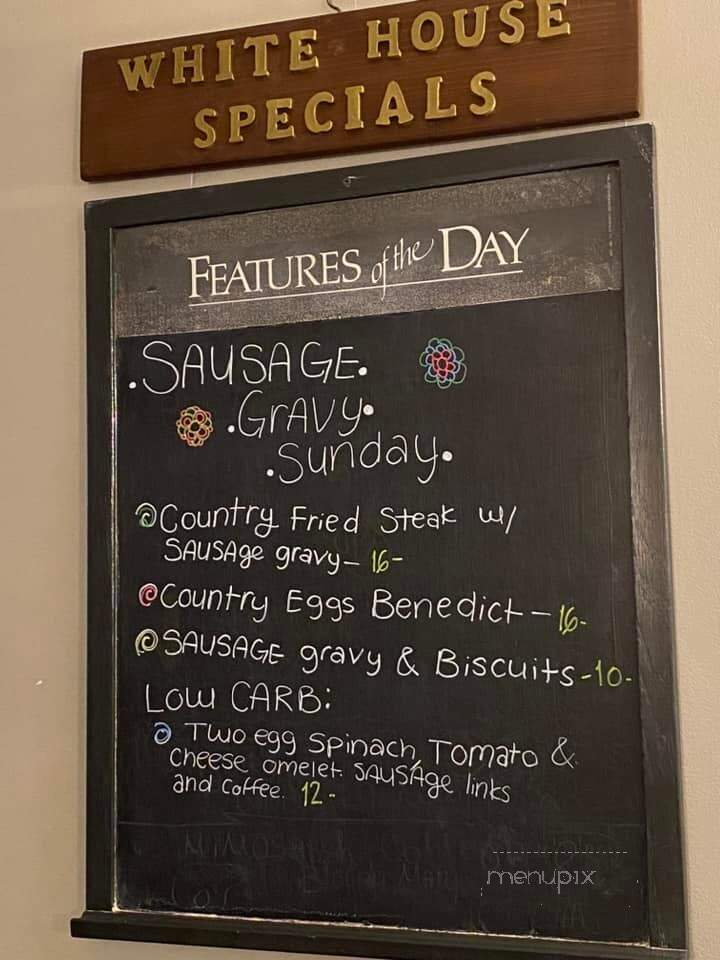 WHITE HOUSE
SPECIALS
FEATURES of the DAY
.SAUSAGE.
.GrAVy.
.Sunday.
Country Fried Steak w/
SAUSAge gravy- 16-
Country Eggs Benedict - 16-
SAUSAGE gravy & Biscuits -10-
Low CARB:
Two egg Spinach, Tomato &
cheese omelet. SAUSAge links
and coffee. 12-
menupix